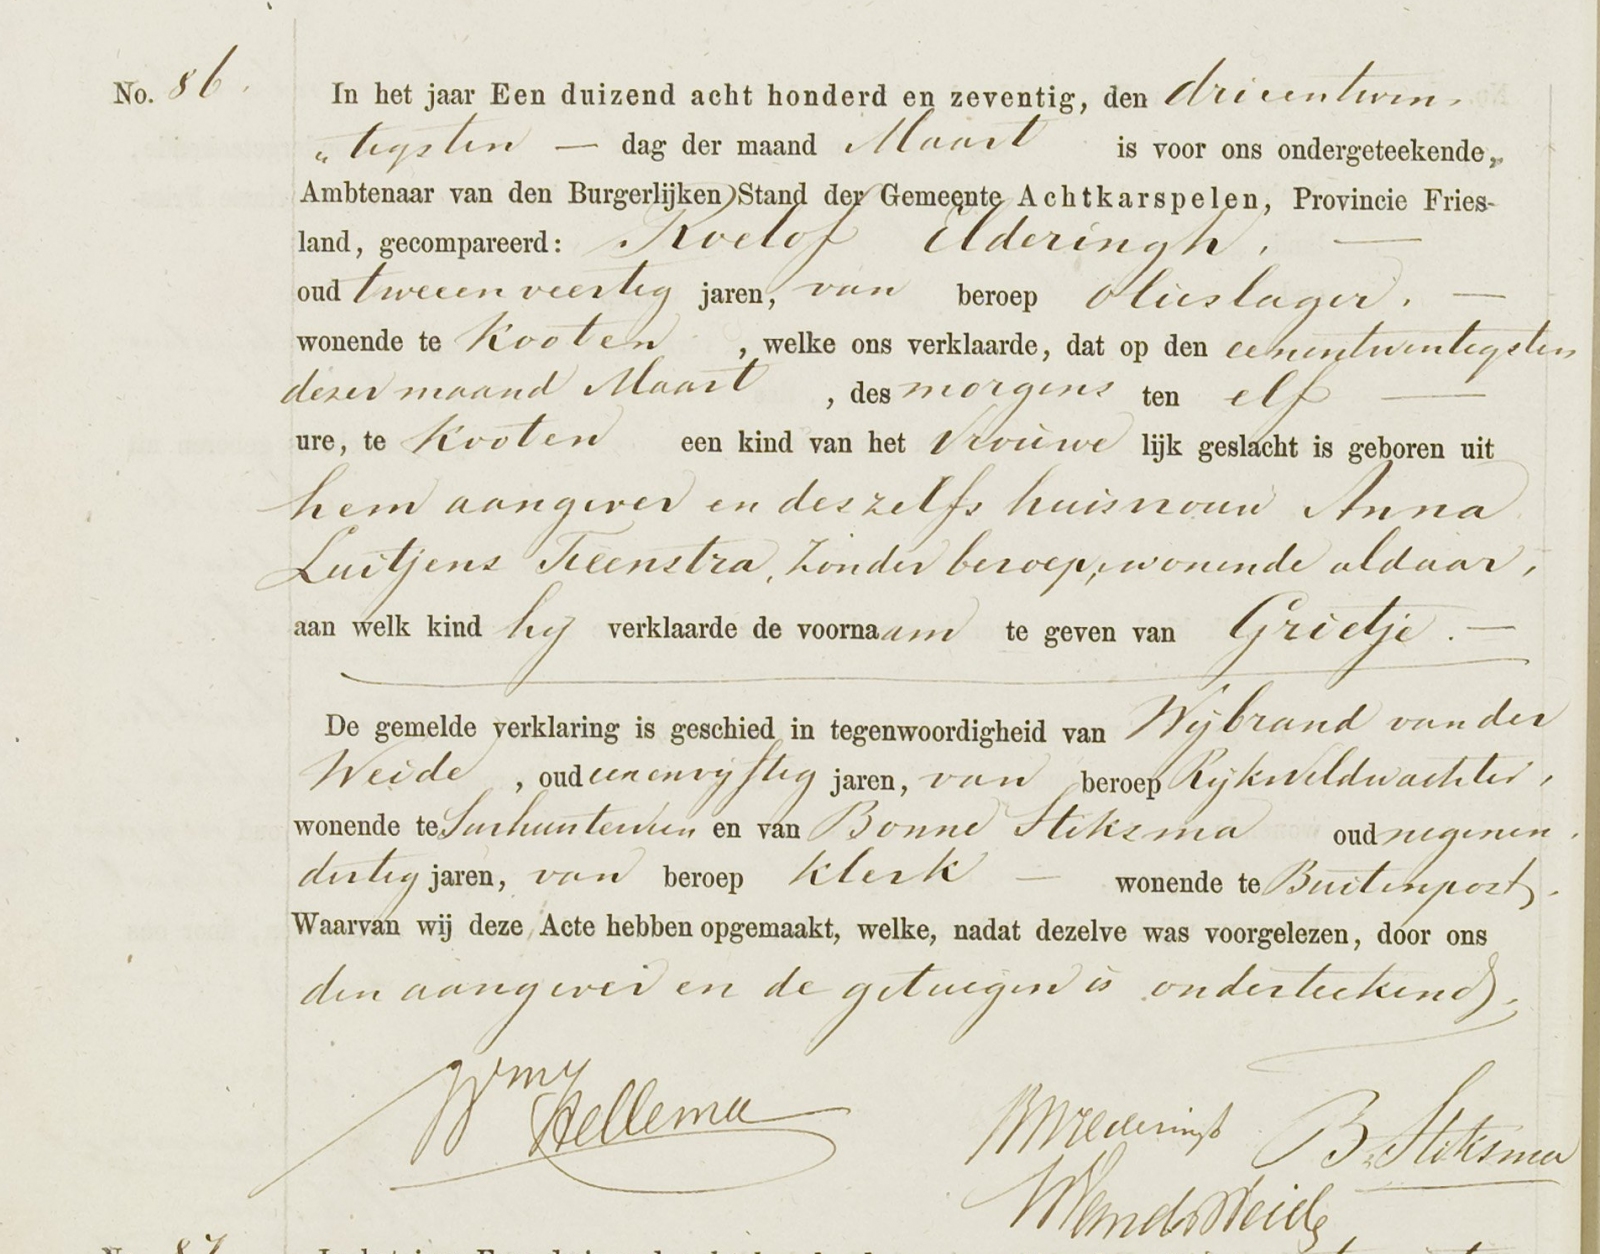 No. 86. In het jaar Een duizend acht honderd en zeventig, den drieentwin-
„tigsten — dag der maand Maart is voor ons ondergeteekende,
Ambtenaar van den Burgerlijken Stand der Gemeente Achtkarspelen, Provincie Fries-
land, gecompareerd: Roelof Elderingh. —
oud tweeenveertig jaren, van beroep olieslager. —
wonende te Kooten , welke ons verklaarde, dat op den eenentwintigsten
dezer maand Maart , des morgens ten elf —
ure, te Kooten een kind van het vrouwe lijk geslacht is geboren uit
hem aangever en deszelfs huisvrouw Anna
Luitjens Feenstra, zonder beroep, wonende aldaar,
aan welk kind hij verklaarde de voornaam te geven van Grietje. —
De gemelde verklaring is geschied in tegenwoordigheid van Wijbrand van der
Weide , oud eenenvijftig jaren, van beroep Rijksveldwachter,
wonende te Surhuisterveen en van Bonne Stiksma oud negenen-
dertig jaren, van beroep klerk — wonende te Buitenpost.
Waarvan wij deze Acte hebben opgemaakt, welke, nadat dezelve was voorgelezen, door ons
den aangever en de getuigen is onderteekend.
Hellema
B. Stiksma
WvanderWeide